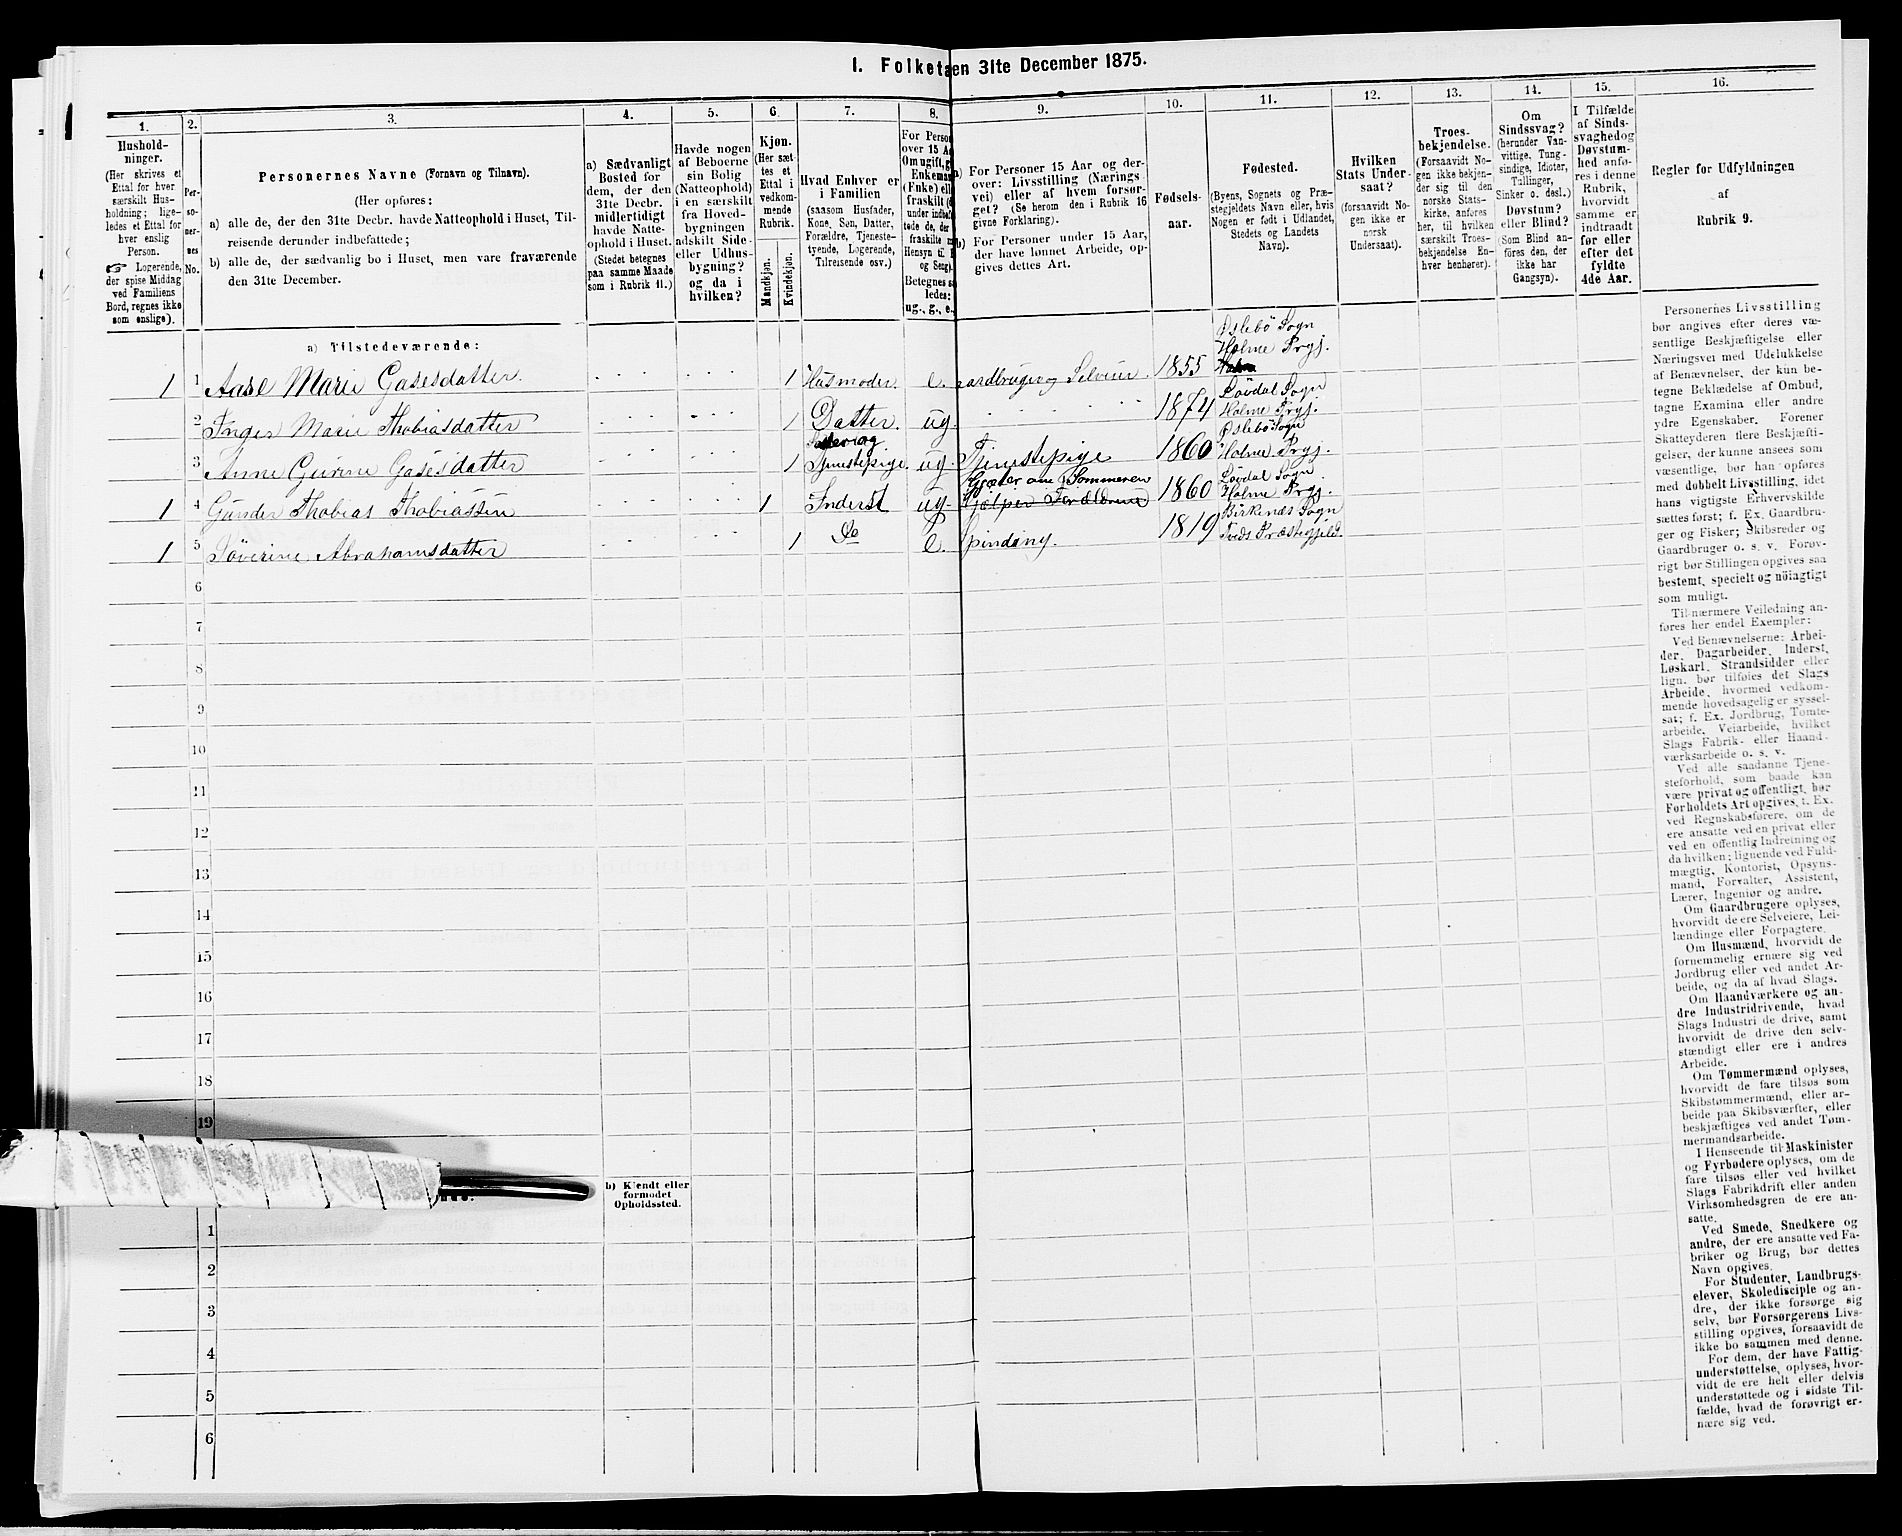 I. Folketæ en 31te December 1875.
1. 2. 3. 4. 5. 6. 7. 8. 9. 10. 11. 12. 13. 14. 15. 16.
Hushold-
ninger.
(Her skrives et
Ettal for hver
særskilt Hus-
holdning; lige-
ledes et Ettal for
hver enslig
Person.
☞ Logerende,
der spise Middag
ved Familiens
Bord, regnes ikke
som enslige).
Per-
so-
ner-
nes
No.
Personernes Navne (Fornavn og Tilnavn).
(Her opføres:
a) alle de, der den 31te Decbr. havde Natteophold i Huset, Til-
reisende derunder indbefattede;
b) alle de, der sædvanlig bo i Huset, men vare fraværende
den 31te December.
a) Sædvanligt
Bosted for
dem, der den
31te Decbr.
midlertidigt
havde Natte-
ophold i Huset.
(Stedet betegnes
paa samme Maade
som i Rubrik 11.)
Havde nogen
af Beboerne
sin Bolig
(Natteophold)
i en særskilt
fra Hoved-
bygningen
adskilt Side-
eller Udhus-
bygning?
og da i
hvilken?
Kjøn.
(Her sæt-
tes et
Ettal i
vedkom-
mende
Rubrik.
Mandkjøn.
Kvindekjøn.
Hvad Enhver er
i Familien
(saasom Husfader,
Kone, Søn, Datter,
Forældre, Tjeneste-
tyende, Logerende,
Tilreisende osv.)
For Person
over 15 Aa
Om ugift, g
Enkeman
(Fuke) ell
fraskilt (
under indbef
tede de, der
fraskilte m
Hensyn til B
og Seng).
Betegnes sa
ledes:
ug., g., e.
a) For Personer 15 Aar og der-
over: Livsstilling (Nærings
vei) eller af hvem forsør-
get? (Se herom den i Rubrik 16
givne Forklaring).
b) For Personer under 15 Aar,
der have lønnet Arbeide, op-
gives dettes Art.
Fødsels-
aar.
Fødested.
(Byens, Sognets og Præ-
stegjeldets Navn eller, hvis
Nogen er født i Udlandet,
Stedets og Landets
Navn).
Hvilken
Stats Under-
saat?
(forsaavidt No-
gen ikke er
norsk
Undersaat).
Troes-
bekjendelse.
(Forsaavidt No-
gen ikke bekjen-
der sig til den
norske Stats-
kirke, anføres
her, til hvilken
særskilt Troes-
bekjendelse En-
hver henhører).
Om
Sindssvag?
(herunder Van-
vittige, Tung-
sindige, Idioter,
Tullinger,
Sinker o. desl.)
Døvstum?
eller Blind?
(Som Blind an-
føres den, der
ikke har
Gangsyn).
I Tilfælde
af Sinds-
svaghed og
Døvstum-
hed anfø-
res i denne
Rubrik,
hvorvidt
samme er
indtraadt
før eller
efter det
fyldte
4de Aar.
Regler for Udfyldningen
af
Rubrik 9.
a) Tilstedeværende:
Øslebö Sogn
1 1 Aase Marie Gasesdatter. 1 Husmoder. e. aardbruger og Selveier. 1855 Holme Prgj.
Løvdal Sogn
2 Inger Marie Thobiasdatter 1 Datter. ug. 1874 Holme Prgj.
Øslebö Sogn
3 Anne Gurine Gasesdatter 1 Tjenestepige. ug. Tjenestepige 1860 Holme Prgj.
Gjæter om Sommeren Løvdal Sogn
1 4 Gunder Thobias Thobiassen 1 Inderst ug. Hjælper Forældrene 1860 Holme Prgj.
Birkenæs Sogn
1 5 Søverine Abrahamsdatter 1 Do e. Spinding. 1819 Tveds Præstegjeld.
6
7
8
9
10
11
12
13
14
15
16
17
18
19
b) Kjendt eller
formodet
Opholdssted.
1
2
3
4
5
6
Personernes Livsstilling
bør angives efter deres væ-
sentlige Beskjæftigelse eller
Næringsvei med Udelukkelse
af Benævnelser, der kun be-
tegne Beklædelse af Ombud,
tagne Examina eller andre
ydre Egenskaber. Forener
Skatteyderen flere Beskjæfti-
gelser, der kunne ansees som
væsentlige, bør han opføres
med dobbelt Livsstilling, idet
hans vigtigste Erhvervskilde
sættes først; f. Ex. Gaardbru-
ger og Fisker; Skibsreder og
Gaardbruger o. s. v. Forøv-
rigt bør Stillingen opgives saa
bestemt, specielt og nöiagtigt
som muligt.
Til nærmere Veiledning an-
føres her endel Exempler:
Ved Benævnelserne: Arbei-
der, Dagarbeider, Inderst,
Løskarl, Strandsidder eller
lign. bør tilføies det Slags
Arbeide, hvormed vedkom-
mende hovedsagelig er syssel-
sat; f. Ex. Jordbrug, Tomte-
arbeide, Veiarbeide, hvilket
Slags Fabrik- eller Haand-
værksarbeide o. s. v.
Ved alle saadanne Tjene-
steforhold, som baade kan
være privat og offentligt, bør
Forholdets Art opgives, t. Ex.
ved Regnskabsførere, om de
ere ansatte ved en privat eller
ved en offentlig Indretning og
da hvilken; lignende ved Fuld-
mægtig, Kontorist, Opsyns-
mand, Forvalter, Assistent,
Lærer, Ingeniør og andre.
Om Gaardbrugere oplyses,
hvorvidt de ere Selveiere, Lei-
lændinge eller Forpagtere.
Om Husmænd, hvorvidt de
fornemmelig ernære sig ved
Jordbrug eller ved andet Ar-
beide, og da af hvad Slags.
Om Haandværkere og an-
dre Industridrivende, hvad
Slags Industri de drive, samt
hvorvidt de drive den selv-
stændigt eller ere i andres
Arbeide.
Om Tømmermænd oplyses,
hvorvidt de fare tilsøs som
Skibstømmermænd, eller ar-
beide paa Skibsværfter, eller
beskjæftiges ved andet Tøm-
mermandsarbeide.
I Henseende til Maskinister
og Fyrbødere oplyses, om de
fare tilsøs eller ved hvilket
Slags Fabrikdrift eller anden
Virksomhedsgren de ere an-
satte.
Ved Smede, Snedkere og
andre, der ere ansatte ved Fa-
briker og Brug, bør dettes
Navn opgives.
For Studenter, Landbrugs-
elever, Skoledisciple og an-
dre, der ikke forsørge sig
selv, bør Forsørgerens Livs-
stilling opgives, forsaavidt de
ikke bo sammen med denne.
For dem, der have Fattig-
understøttelse, oplyses, hvor-
vidt de ere helt eller delvis
understøttede og i sidste Til-
fælde, hvad de forøvrigt er-
nære sig ved.